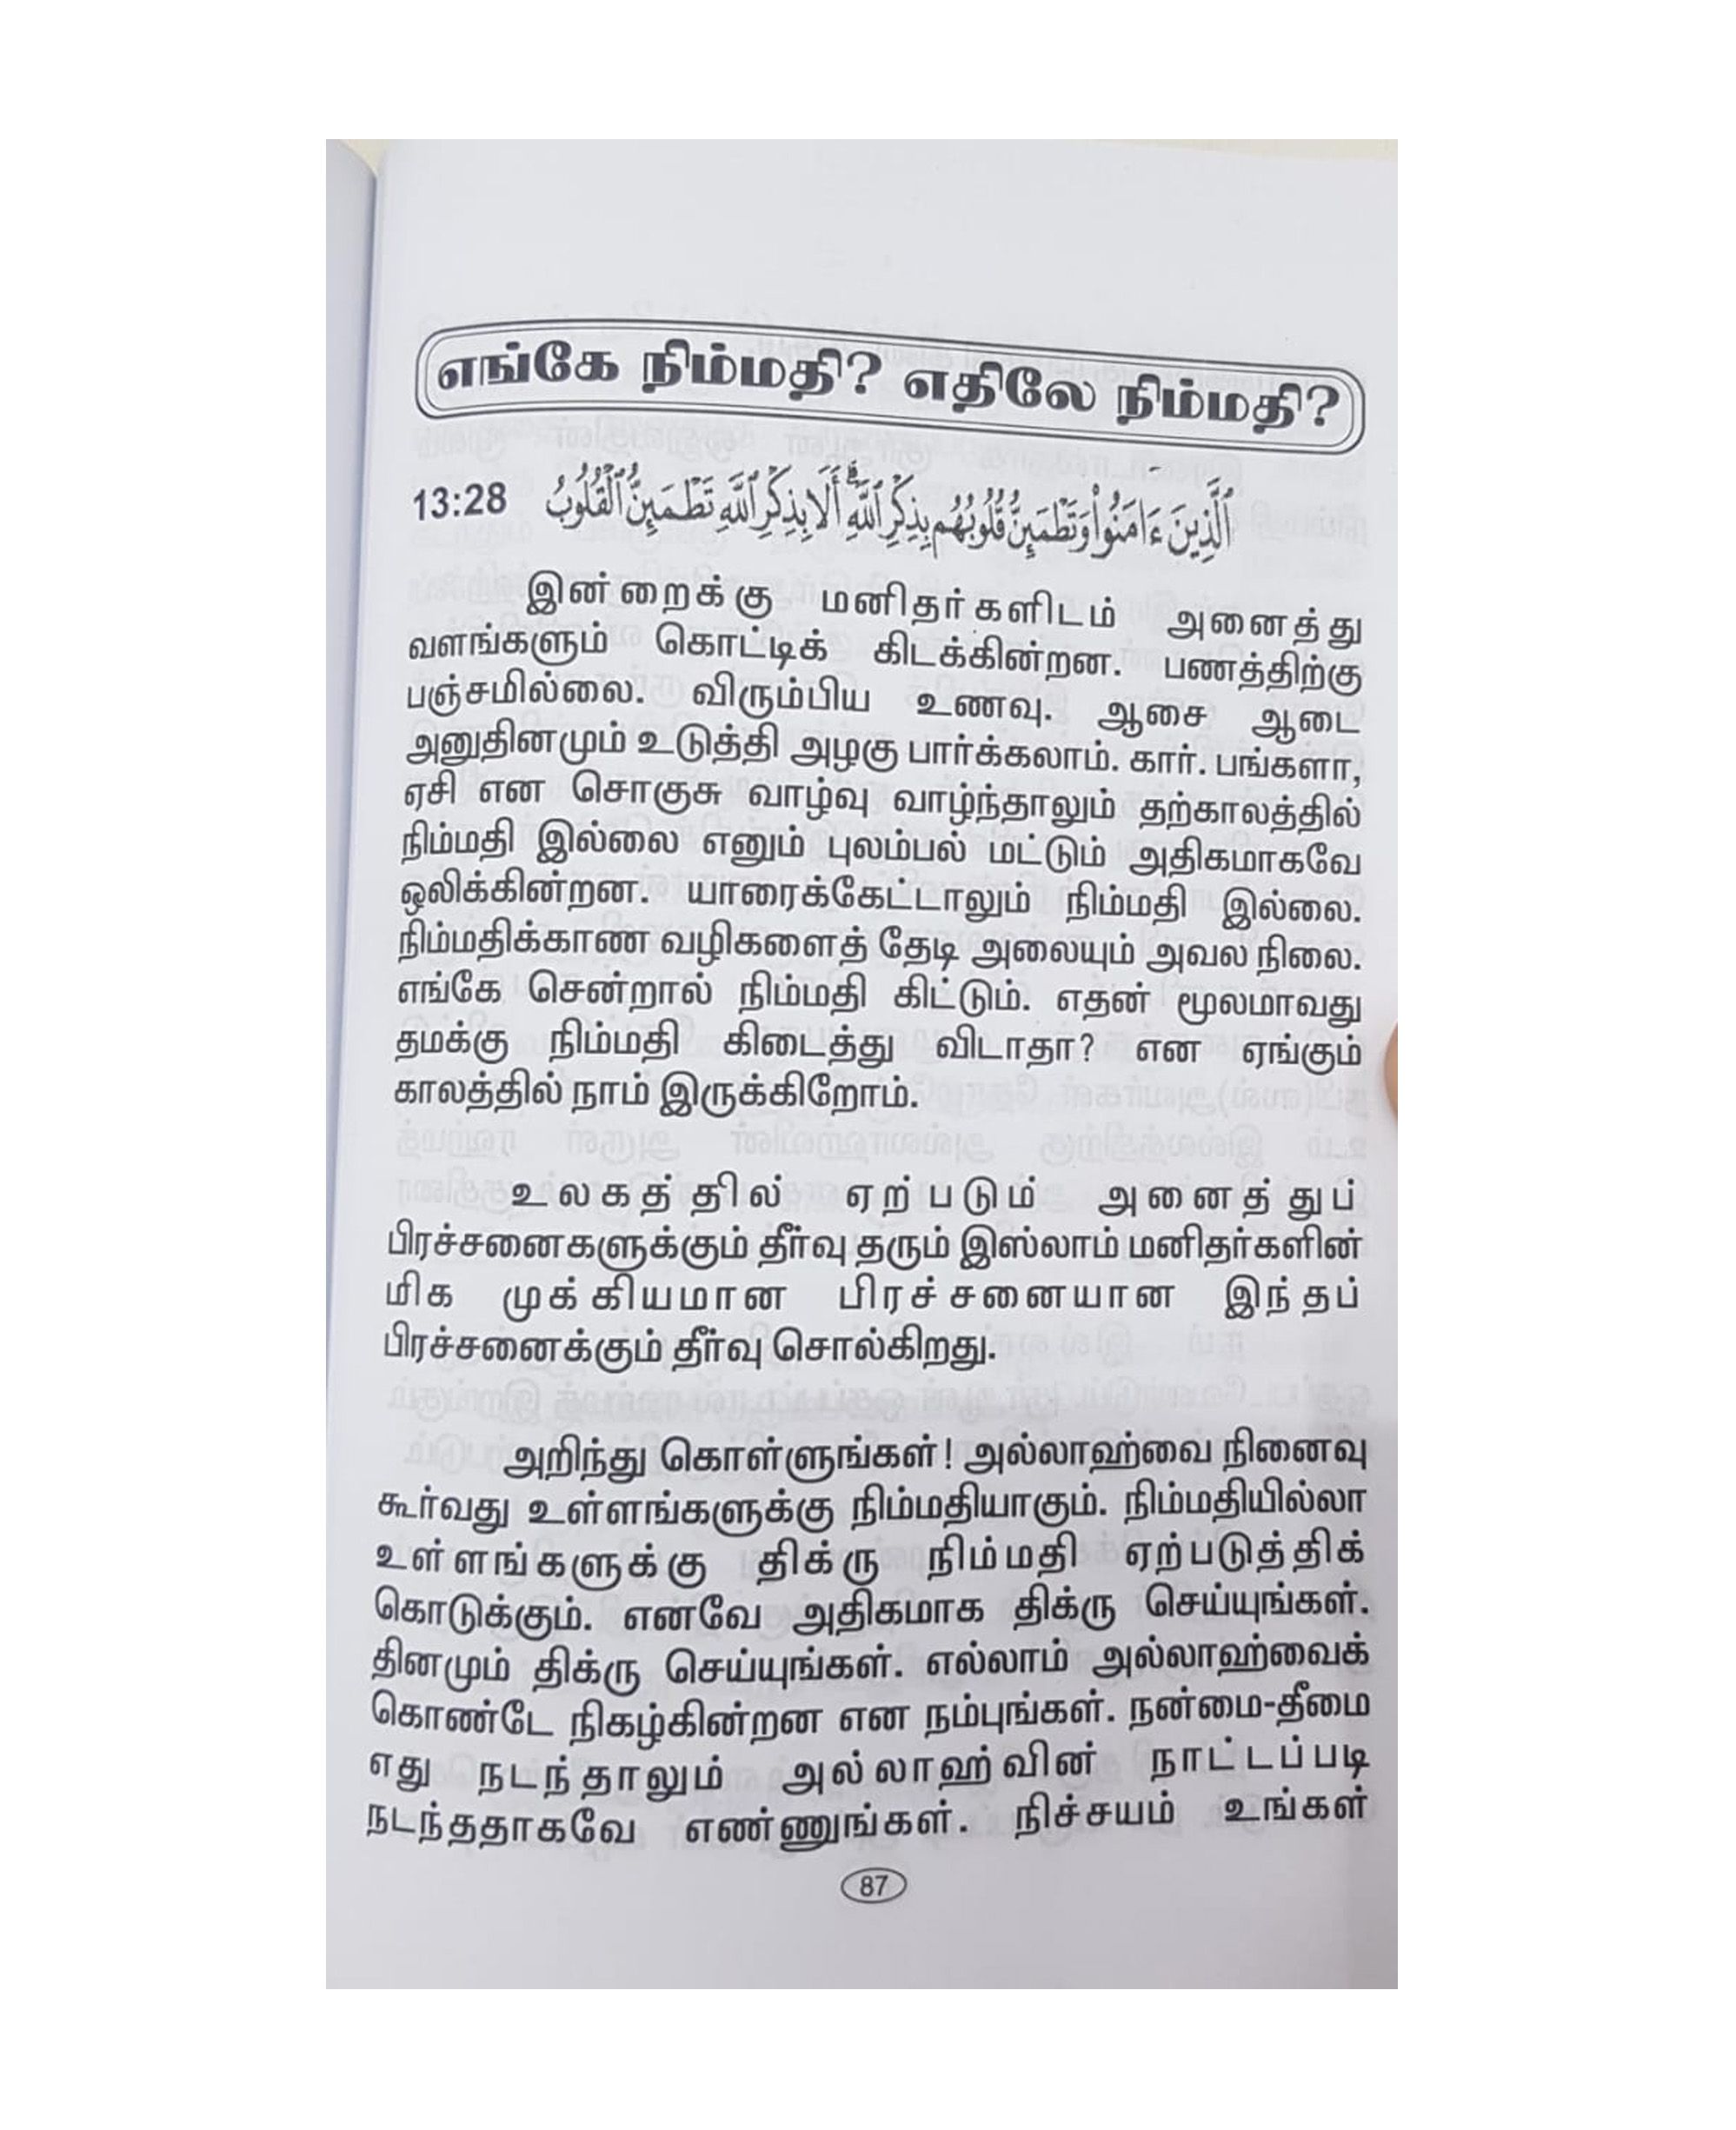 எங்கே நிம்மதி? எதிலே நிம்மதி?
13:28 ٱلَّذِينَ ءَامَنُوا۟ وَتَطْمَئِنُّ قُلُوبُهُم بِذِكْرِ ٱللَّهِ ۗ أَلَا بِذِكْرِ ٱللَّهِ تَطْمَئِنُّ ٱلْقُلُوبُ
இன்றைக்கு மனிதர்களிடம் அனைத்து
வளங்களும் கொட்டிக் கிடக்கின்றன. பணத்திற்கு
பஞ்சமில்லை. விரும்பிய உணவு. ஆசை ஆடை
அனுதினமும் உடுத்தி அழகு பார்க்கலாம். கார். பங்களா,
ஏசி என சொகுசு வாழ்வு வாழ்ந்தாலும் தற்காலத்தில்
நிம்மதி இல்லை எனும் புலம்பல் மட்டும் அதிகமாகவே
ஒலிக்கின்றன. யாரைக்கேட்டாலும் நிம்மதி இல்லை.
நிம்மதிக்காண வழிகளைத் தேடி அலையும் அவல நிலை.
எங்கே சென்றால் நிம்மதி கிட்டும். எதன் மூலமாவது
தமக்கு நிம்மதி கிடைத்து விடாதா? என ஏங்கும்
காலத்தில் நாம் இருக்கிறோம்.
உலகத்தில் ஏற்படும் அனைத்துப்
பிரச்சனைகளுக்கும் தீர்வு தரும் இஸ்லாம் மனிதர்களின்
மிக முக்கியமான பிரச்சனையான இந்தப்
பிரச்சனைக்கும் தீர்வு சொல்கிறது.
அறிந்து கொள்ளுங்கள்! அல்லாஹ்வை நினைவு
கூர்வது உள்ளங்களுக்கு நிம்மதியாகும். நிம்மதியில்லா
உள்ளங்களுக்கு திக்ரு நிம்மதி ஏற்படுத்திக்
கொடுக்கும். எனவே அதிகமாக திக்ரு செய்யுங்கள்.
தினமும் திக்ரு செய்யுங்கள். எல்லாம் அல்லாஹ்வைக்
கொண்டே நிகழ்கின்றன என நம்புங்கள். நன்மை-தீமை
எது நடந்தாலும் அல்லாஹ்வின் நாட்டப்படி
நடந்ததாகவே எண்ணுங்கள். நிச்சயம் உங்கள்
87